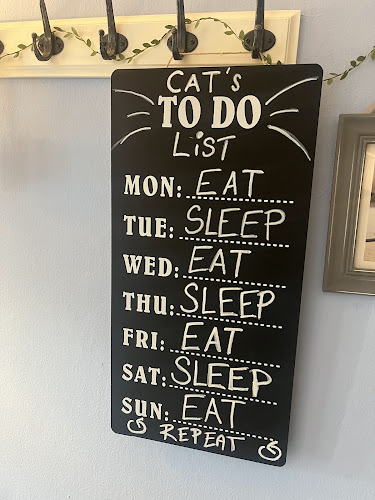 CAT'S
TO DO
LiST
MON: EAT
TUE: SLEEP
WED: EAT
THU: SLEEP
FRI: EAT
SAT: SLEEP
SUN: EAT
REPEAT